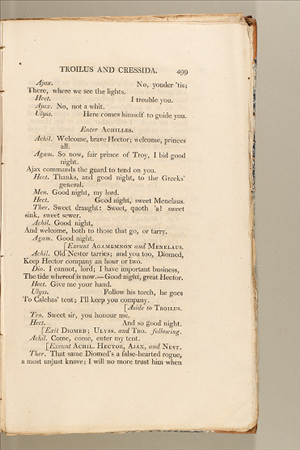 TROILUS AND CRESSIDA. 499
Ajax. No, yonder 'tis;
There, where we see the lights.
Hect. I trouble you.
Ajax. No, not a whit.
Ulyss. Here comes himself to guide you.
Enter ACHILLES.
Achil. Welcome, brave Hector; welcome, princes
all.
Agam. So now, fair prince of Troy, I bid good
night.
Ajax commands the guard to tend on you.
Hect. Thanks, and good night, to the Greeks'
general.
Men. Good night, my lord.
Hect. Good night, sweet Menelaus.
Ther. Sweet draught: Sweet, quoth 'a! sweet
sink, sweet sewer.
Achil. Good night,
And welcome, both to those that go, or tarry.
Agam. Good night.
[Exeunt AGAMEMNON and MENELAUS.
Achil. Old Nestor tarries; and you too, Diomed,
Keep Hector company an hour or two.
Dio. I cannot, lord; I have important business,
The tide whereof is now.—Good night, great Hector.
Hect. Give me your hand.
Ulyss. Follow his torch, he goes
To Calchas' tent; I'll keep you company.
[Aside to TROILUS.
Tro. Sweet sir, you honour me.
Hect. And so good night.
[Exit DIOMED; ULYSS. and TRO. following.
Achil. Come, come, enter my tent.
[Exeunt ACHIL. HECTOR, AJAX, and NEST.
Ther. That same Diomed's a false-hearted rogue,
a most unjust knave; I will no more trust him when